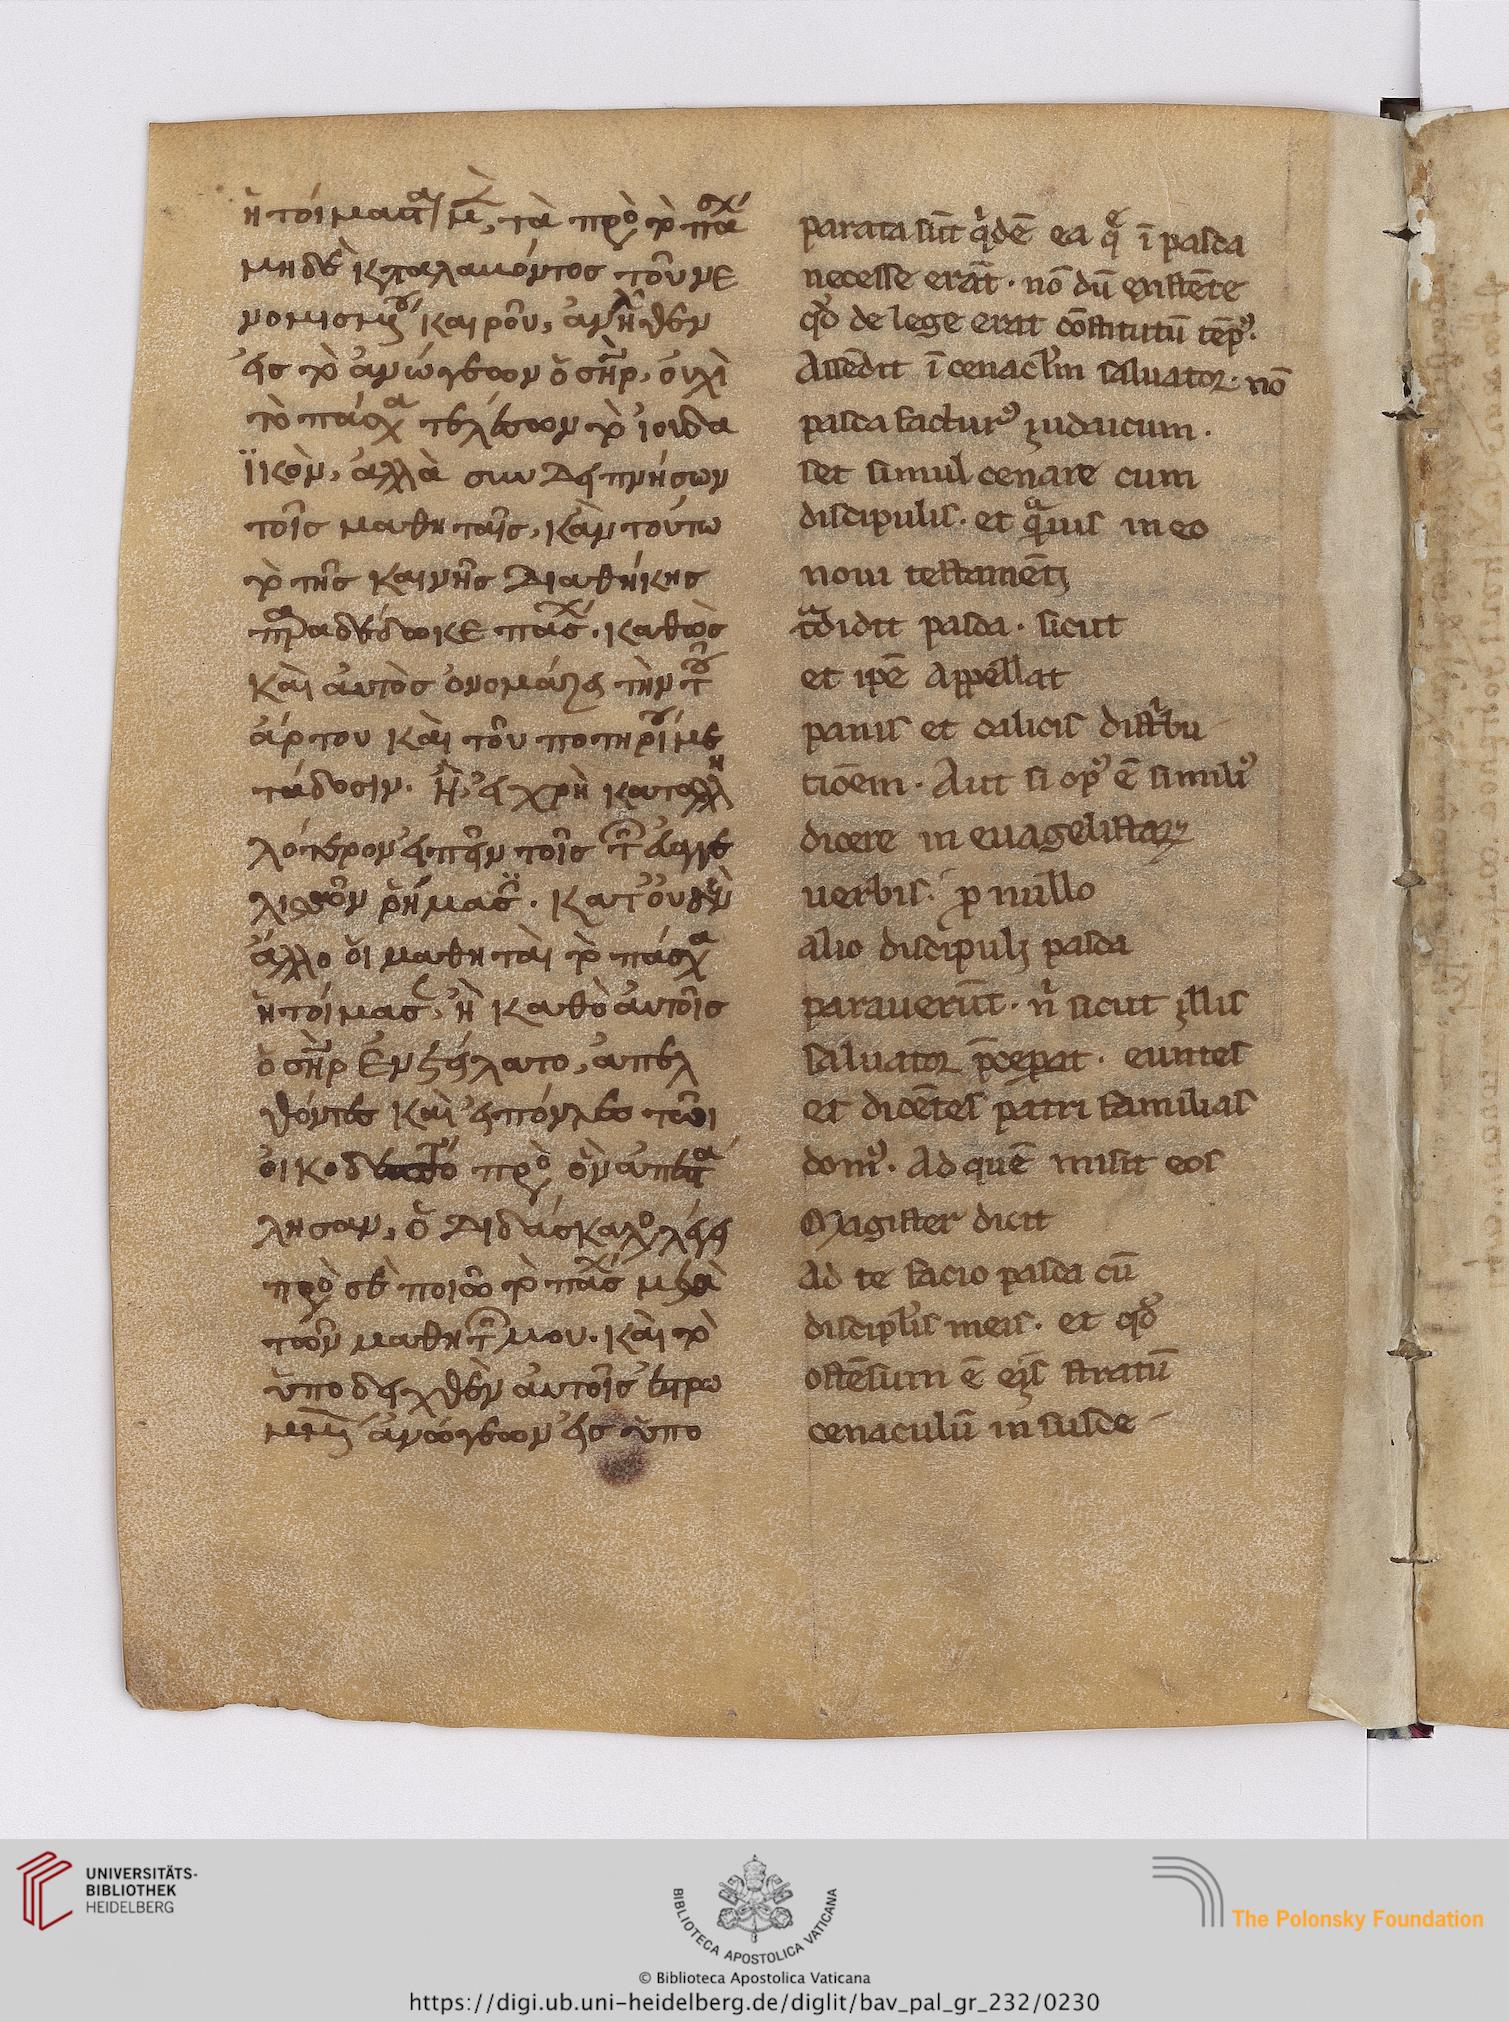 ἡτοίμαστ(αι) μ(ὲν), τὰ πρὸ(ς) τὸ πάσχα
μηδὲ καταλαμόντος τοῦ νε
νομισμ(ένου) καιροῦ, ἀνῆλθεν
εἰς τὸ ἀνώγεων ὁ σ(ωτ)ὴρ, οὐχὶ
τὸ πάσχα τελέσων τὸ ἰουδα
ϊκὸν, ἀλλὰ συνδειπνήσων
τοῖς μαθηταῖς, κἂν τούτω
τὸ τῆς καινῆς διαθήκης
παραδέδωκε πάσχ(α). καθὼς
καὶ αὐτὸς ὀνομάζει τὴν τοῦ
ἄρτου καὶ τοῦ ποτηρίου με
τάδοσιν. Ἢ, εἰ χρὴ καταλλη
λότερον εἰπεῖν τοῖς τῶν εὐαγγε
λιστῶν ῥήμασι. κατ' οὐδὲν
ἄλλο οἱ μαθηταὶ τὸ πάσχα
ἡτοίμασ(αν), ἢ καθὸ αὐτοῖς
ὁ σ(ωτ)ὴρ ἐνετείλατο, ἀπελ
θόντες καὶ εἰπόντες τῶι
οἰκοδεσπό(τη) πρὸ(ς) ὃν ἀπεστά
λησαν, ὁ διδάσκαλο(ς) λέγει
πρὸ(ς) σὲ ποιῶ τὸ πάσχ(α) μετὰ
τῶν μαθητῶν μου. καὶ τὸ
ὑποδειχθὲν αὐτοῖς ἐστρω
μμέν(ον) ἀνώγεων εἰς ὑπο
parata sūt q̇dē ea q̄ ī pasca
necesse erāt. nō dū existēte
qd̕ de lege erat cōstitutū tēp⁹.
Ascēdit ī cenacl̄m saluator. nō
pasca factur⁹ iudaicum.
set simul cenare cum
discipulis. et q̄uis in eo
noui testamēti
tᵃdidit pasca. sicut
et ip̄e appellat
panis et calicis distⁱbu-
tiōem. Aut si op⁹ ē simili⁹
dicere in euagelistarꝝ
uerbis. p nullo
alio discipuli pasca
parauerūt. n̄ sicut illis
saluator p̄ceperat. euntes
et dicētes patri familias
dom⁹. Ad quē misit eos
Magister dicit
Ad te facio pasca cū
discipl̄is meis. et qd̕
ostēsum ē eis stratū
cenaculū in susce-
UNIVERSITÄTS-
BIBLIOTHEK
HEIDELBERG
BIBLIOTECA APOSTOLICA VATICANA
The Polonsky Foundation
© Biblioteca Apostolica Vaticana
https://digi.ub.uni-heidelberg.de/diglit/bav_pal_gr_232/0230